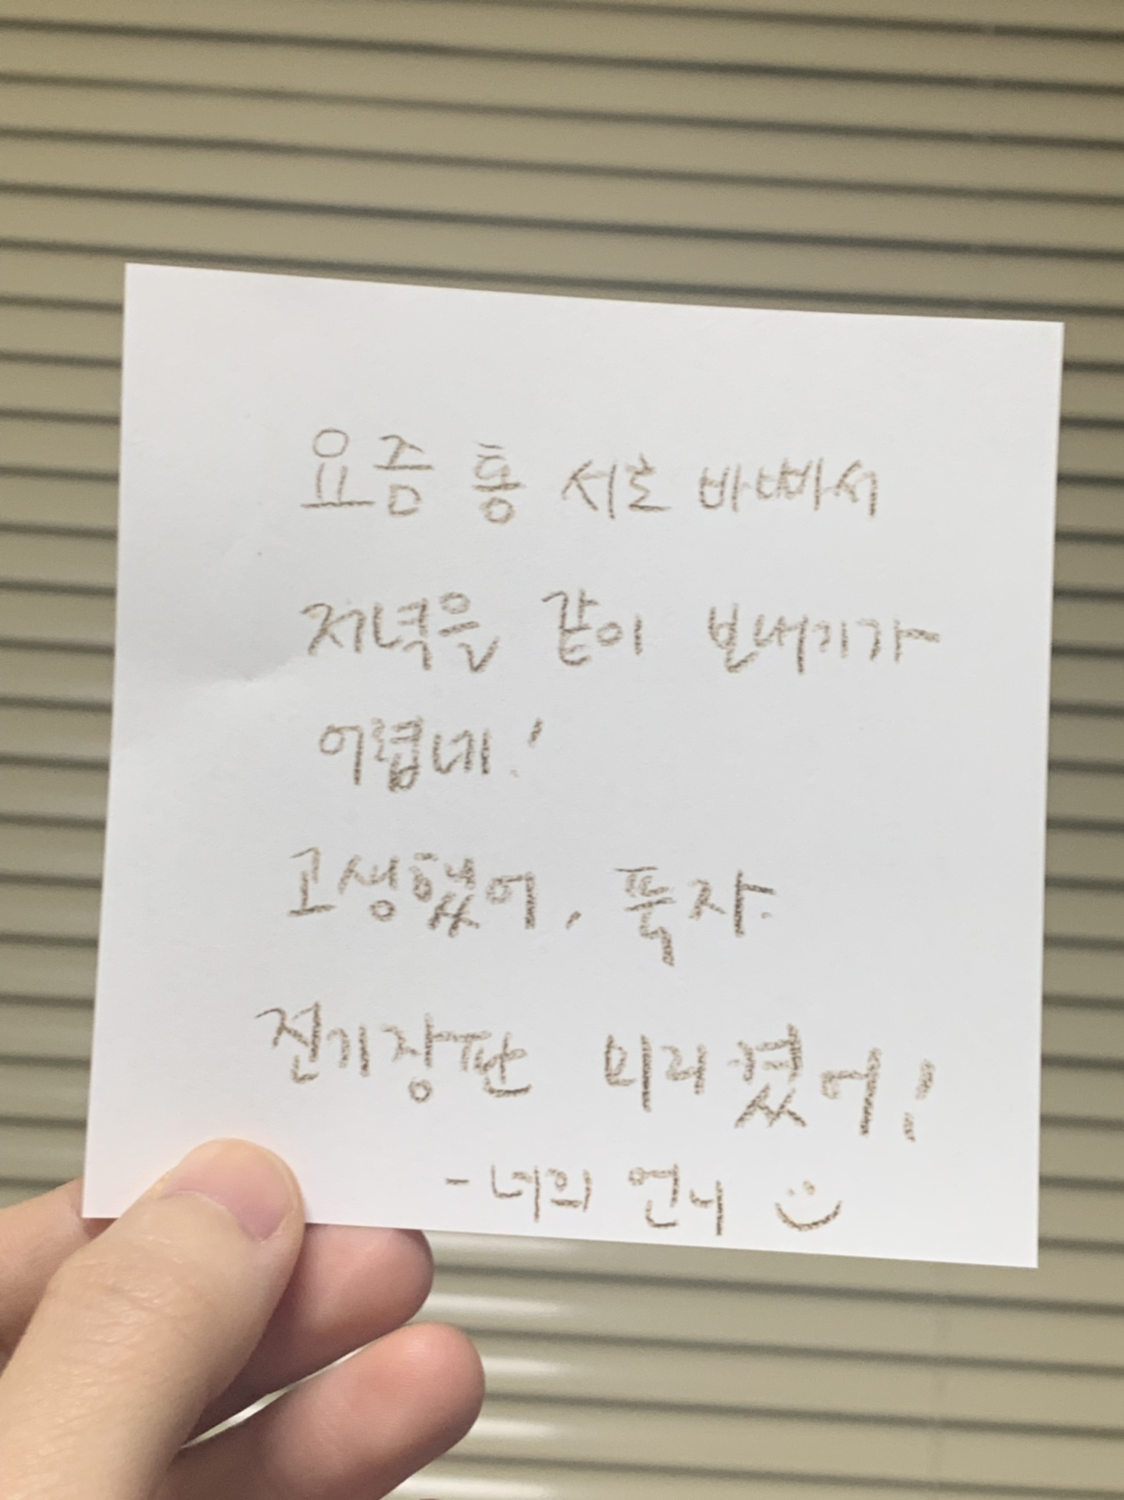 요즘 통 서로 바빠서
저녁을 같이 보내기가
어렵네!
고생했어, 푹자.
전기장판 미리켰어!
- 너의 언니